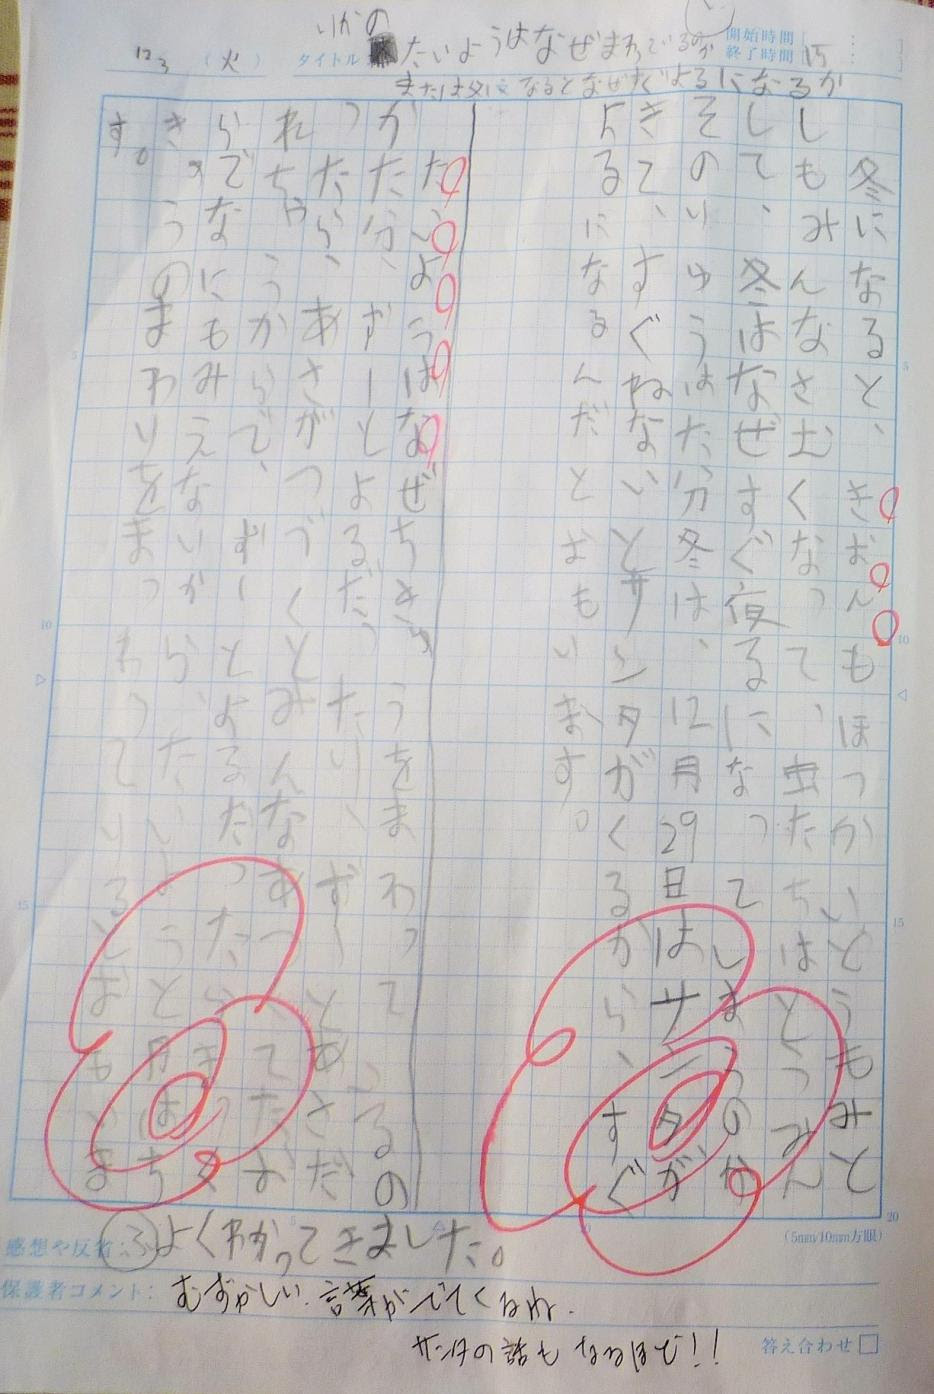 りかの
12/3 （火） タイトル たいようはなぜまわっているのか 開始時間
または冬になるとなぜすぐよるになるか 終了時間 15
冬になると、きおんもほっかいとうもみと
しもみんなさむくなって、虫たちはとうみん
して、冬はなぜすぐ夜るになってしまうのか
そのりゆうはた分冬は、12月29日はサンタが
きて、すぐねないとサンタがくるから、すぐ
よるになるんだとおもいます。
たいようはなぜちきゅうをまわっているの
かた分、ずーとよるだったり、ずーとあさだ
ったら、あさがつづくとみんなあつくてたお
れちゃうからで、ずーとよるだったらまっく
らでなにもみえないから、たいようと月はち
きゅうのまわりをまわっているとおもいま
す。
5
10
15
20
(5mm/10mm方眼)
感想や反省：ふよくわかってきました。
保護者コメント：むずかしい言葉がでてくるね。
サンタの話もなるほど!!
答え合わせ□